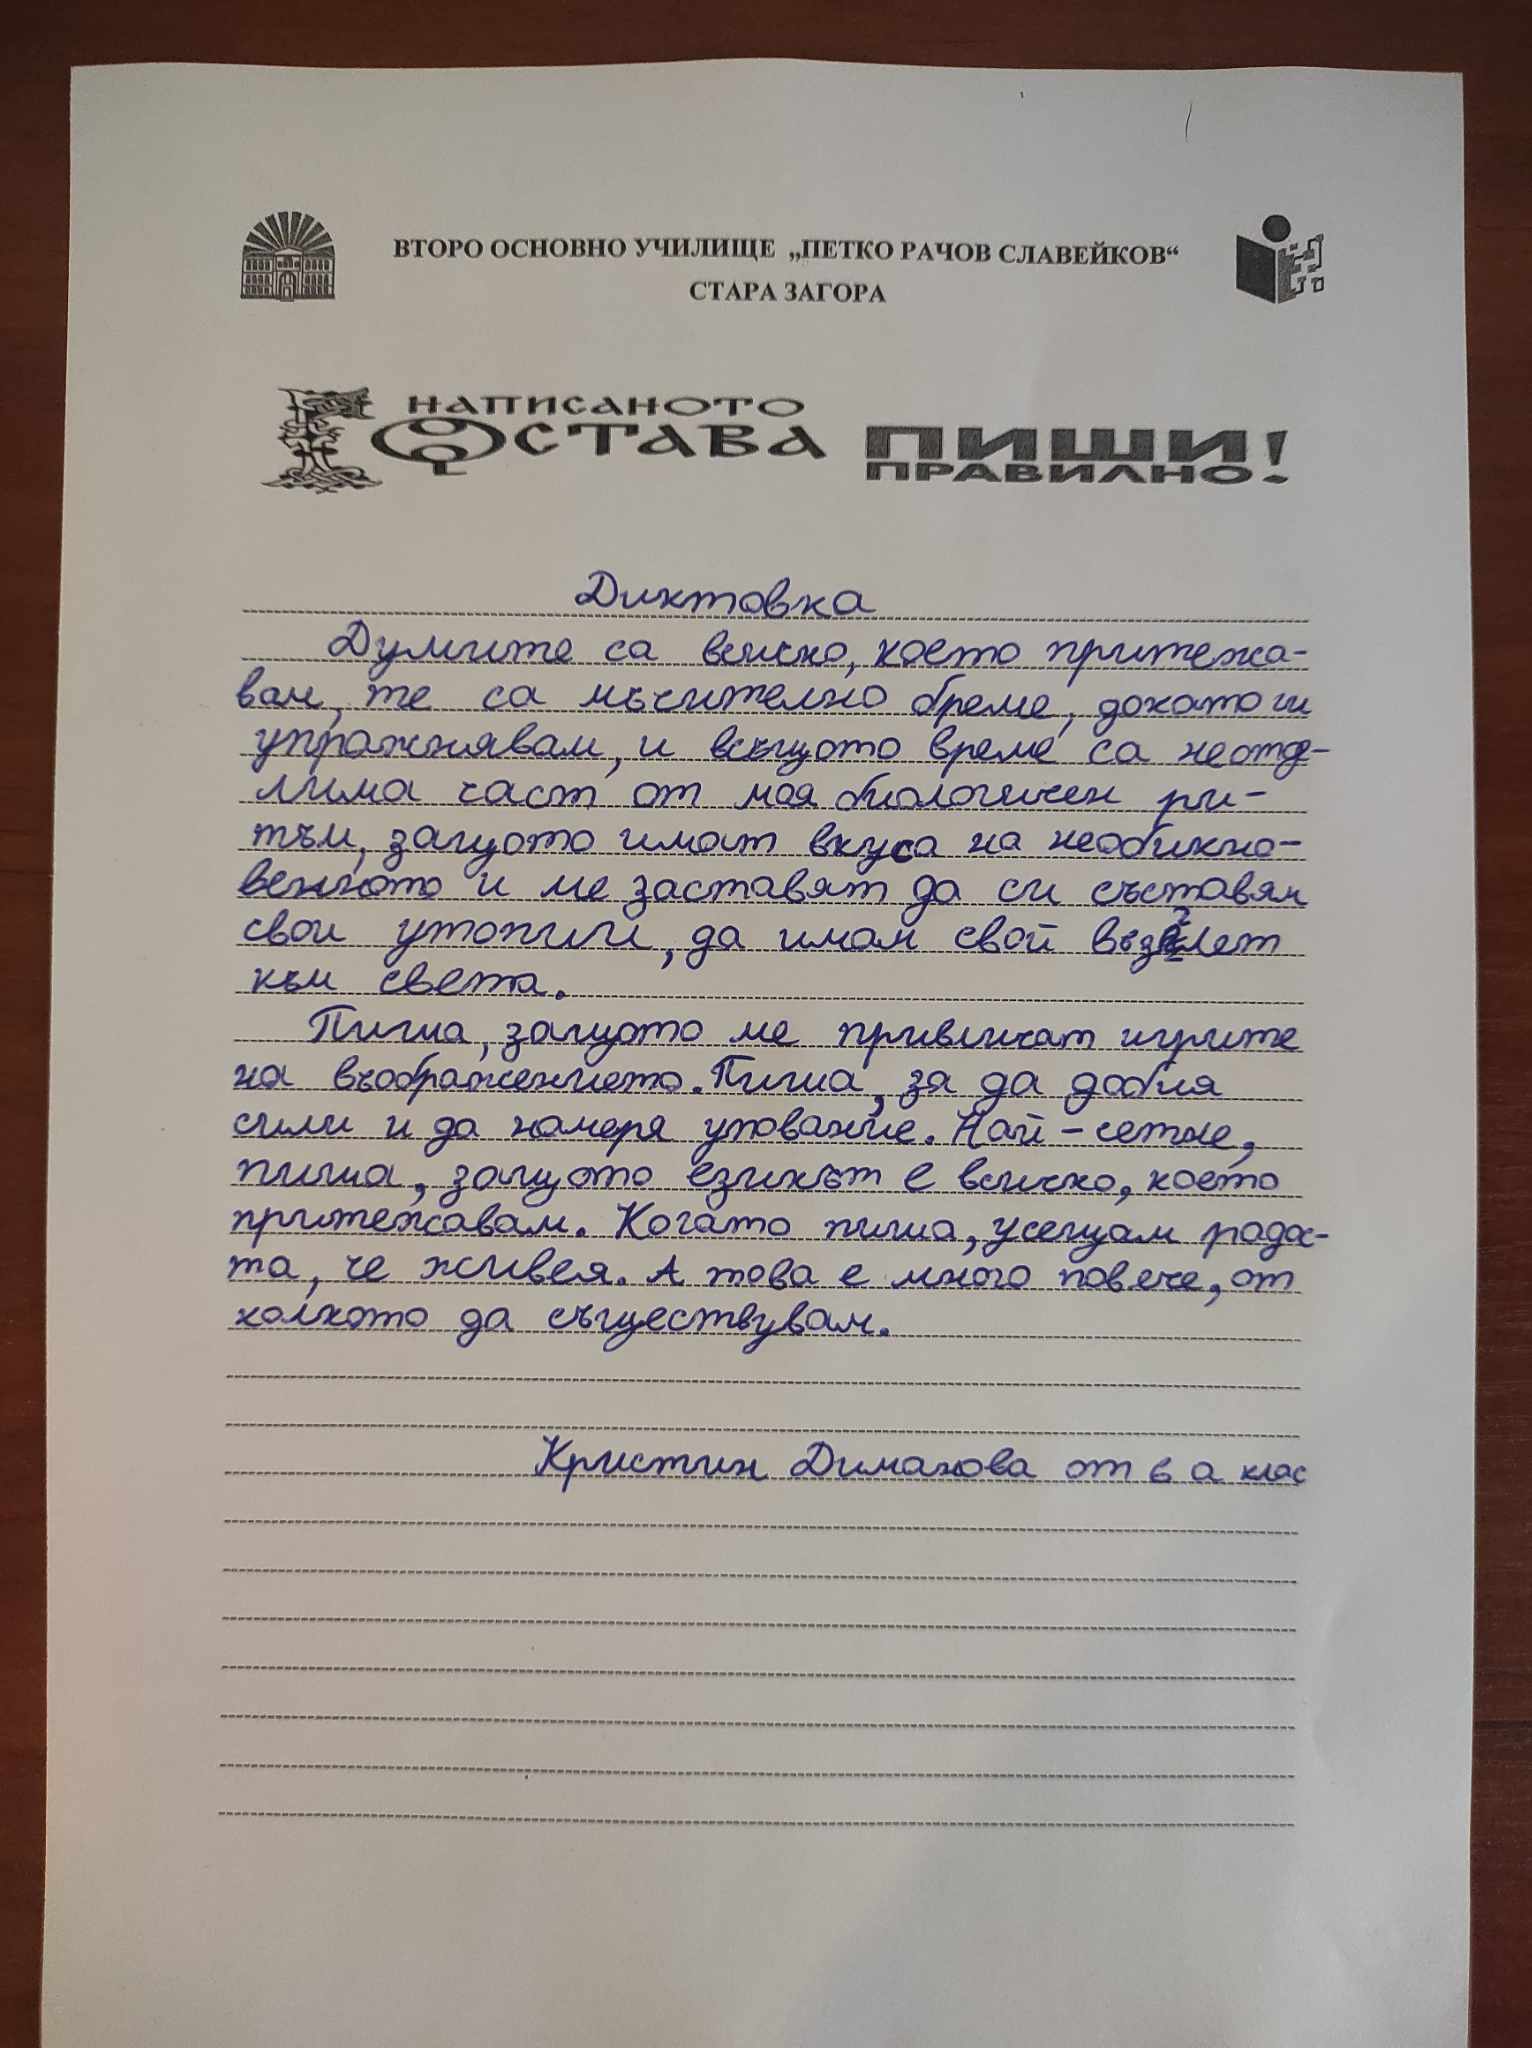 ВТОРО ОСНОВНО УЧИЛИЩЕ „ПЕТКО РАЧОВ СЛАВЕЙКОВ“
СТАРА ЗАГОРА
НАПИСАНОТО
ОСТАВА ПИШИ
ПРАВИЛНО!
Диктовка
Думите са всичко, което притежа-
вам, те са мъчително бреме, докато ги
упражнявам, и в същото време са неотде-
лима част от моя биологичен ри-
тъм, защото имат вкуса на необикно-
веното и ме заставят да си съставям
свои утопии, да имам свой възглет
към света.
Пиша, защото ме привличат игрите
на въображението. Пиша, за да добия
сили и да намеря упование. Най-сетне,
пиша, защото езикът е всичко, което
притежавам. Когато пиша, усещам радос-
та, че живея. А това е много повече, от
колкото да съществувам.
Кристин Диманова от 6 а клас